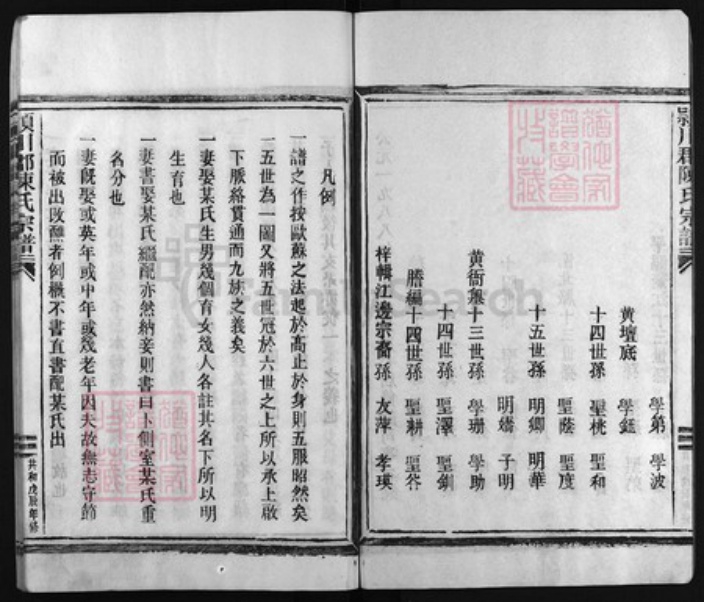 學第 學波
黄壇底 學鑑
十四世孫 聖桃 聖和
聖蔭 聖度
十五世孫 明卿 明華
明嬌 子明
黄衙襲十三世孫 學珊 學助
十四世孫 聖澤 聖釧
謄編十四世孫 聖耕 聖答
梓輯江邊宗裔孫 友萍 孝瑛
潁川郡陳氏宗譜
凡例
一譜之作按歐蘇之法起於高止於身則五服昭然矣
一五世為一圖又將五世冠於六世之上所以承上啟
下脈絡貫通而九族之義矣
一妻娶某氏生男幾個育女幾人各註其名下所以明
生育也
一妻書娶某氏繼配亦然納妾則書曰卜側室某氏重
名分也
一妻既娶或英年或中年或幾老年因夫故無志守節
而被出改醮者例概不書直書配某氏出
潁川郡陳氏宗譜
共和戊辰年修
FamilySearch